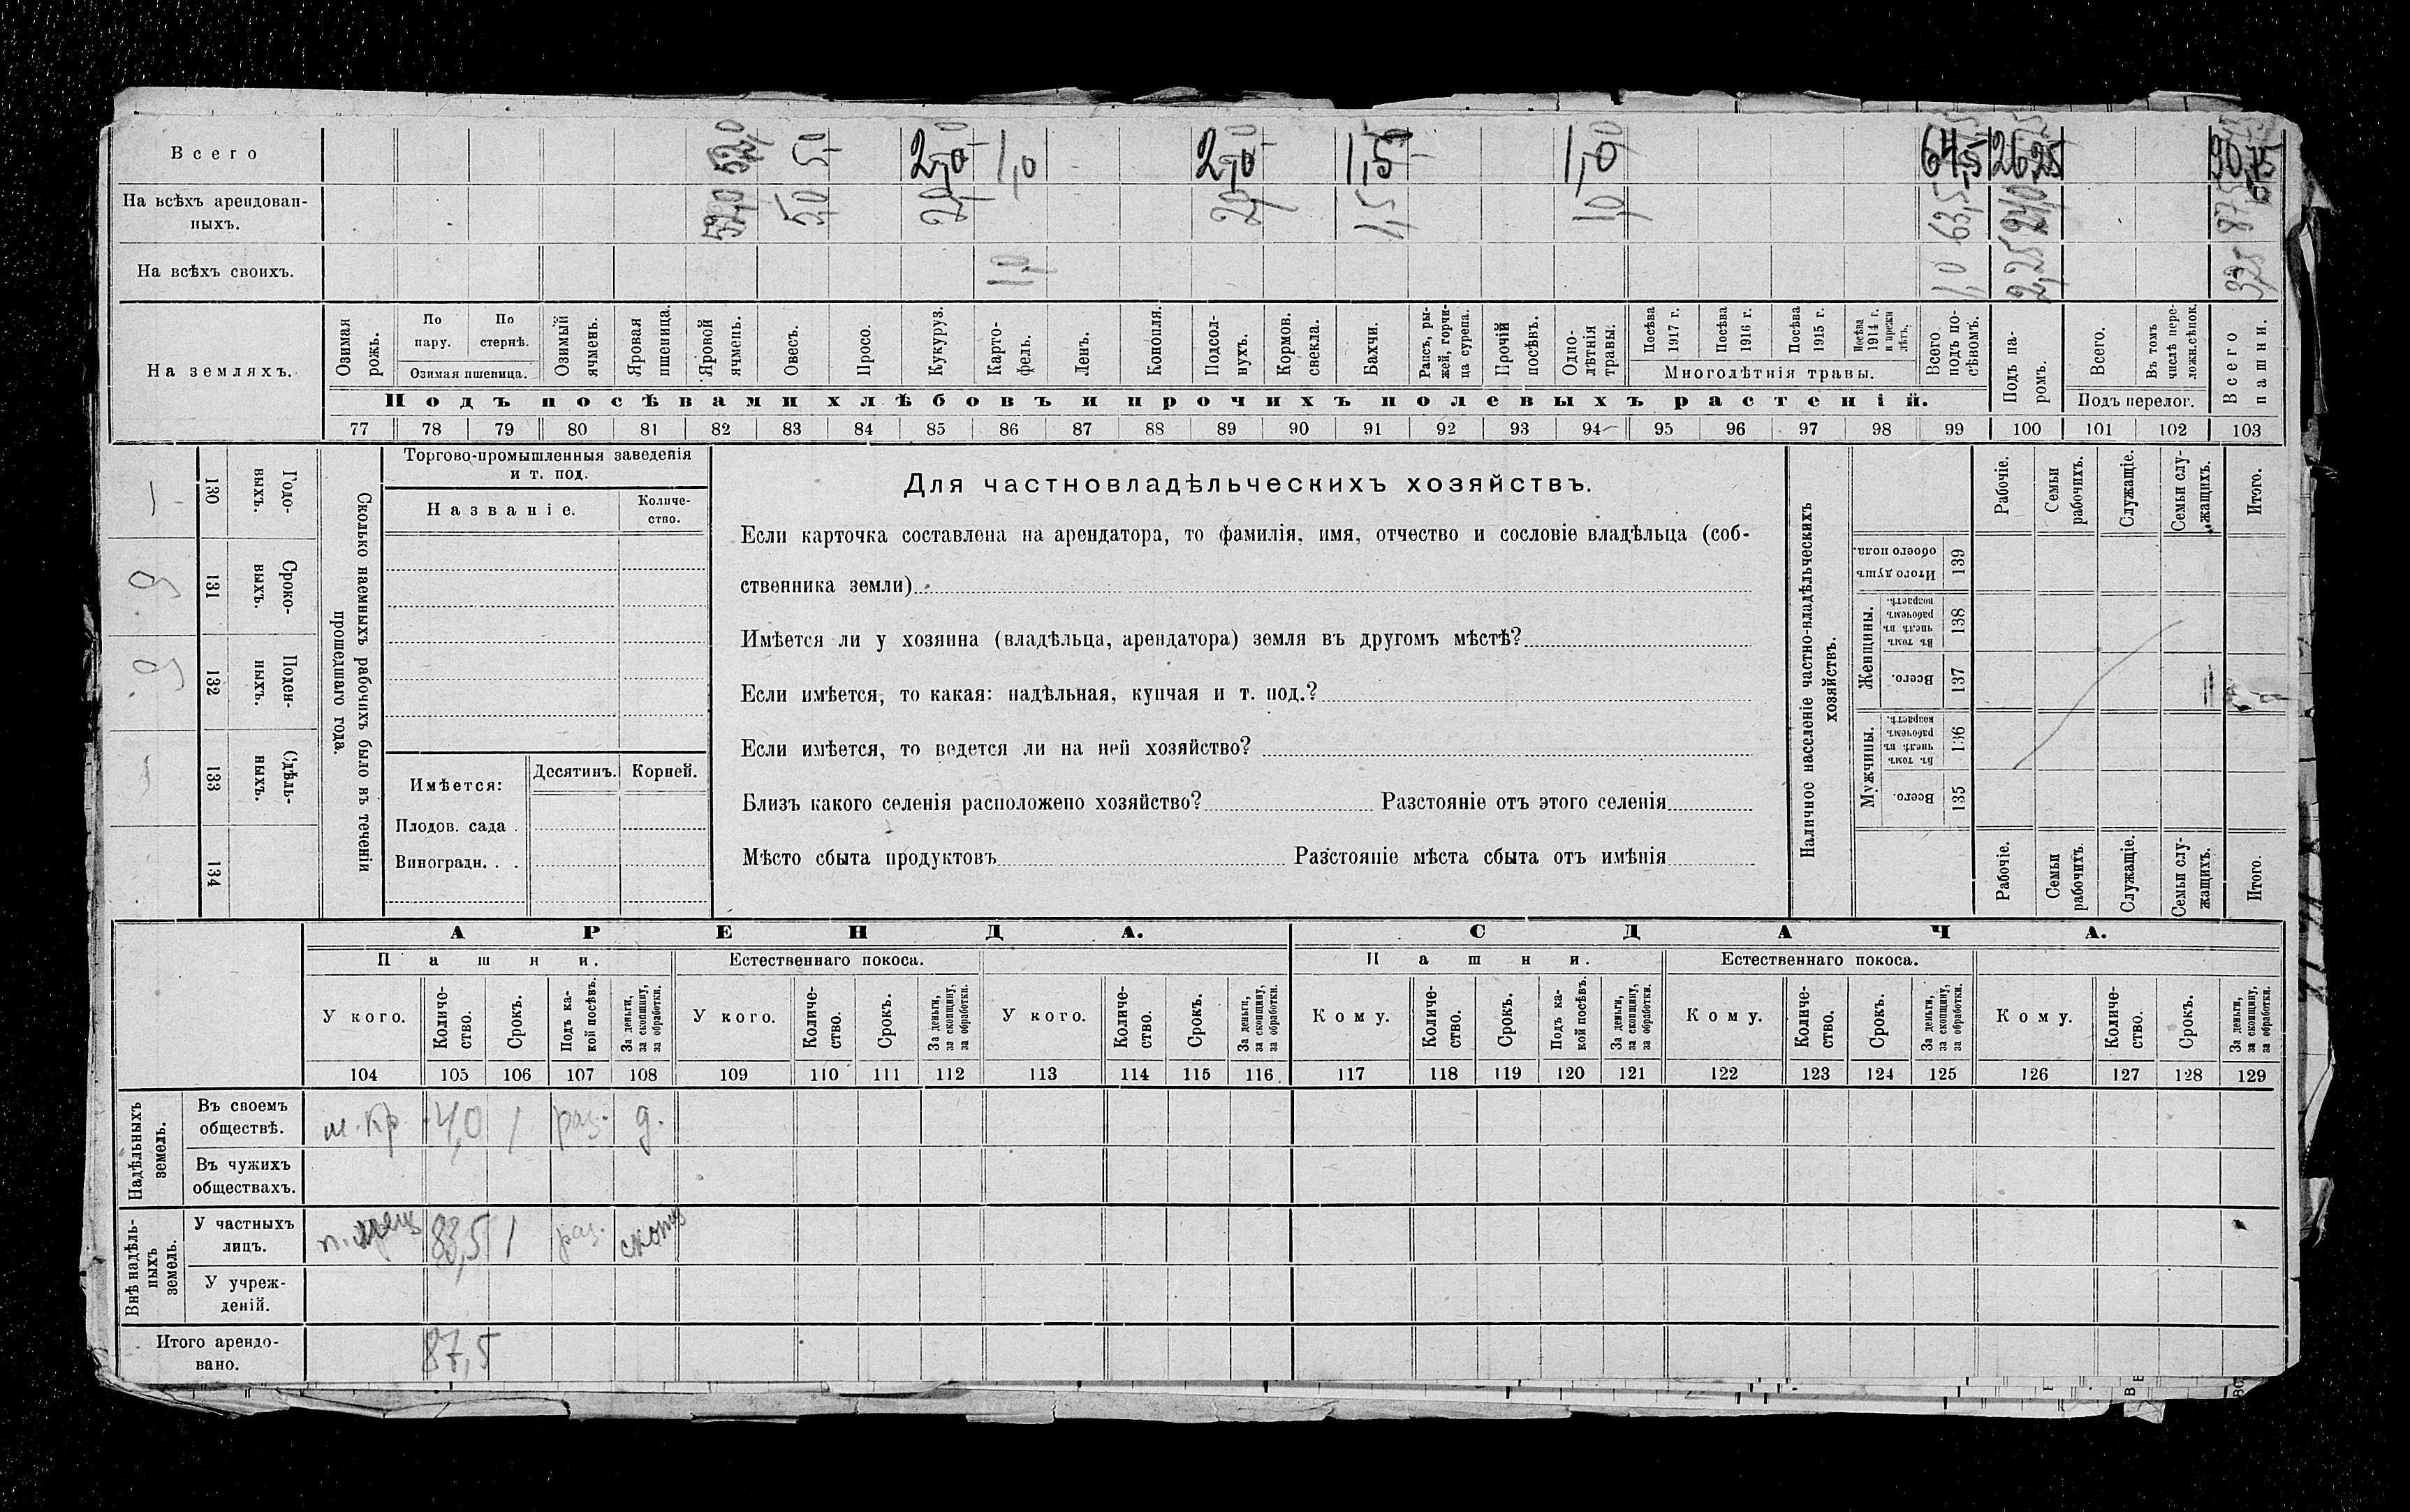 Всего 52,0 5,0 2,0 1,0 2,0 1,5 1,0 64,5 26,25 90,75
На всѣхъ арендован-
ныхъ. 52,0 5,0 2,0 2,0 1,5 1,0 63,5 24,0 87,5
На всѣхъ своихъ. 1,0 1,0 2,25 3,25
На земляхъ.
Озимая рожь.
По пару.
По стернѣ.
Озимая пшеница.
Озимый ячмень.
Яровая пшеница.
Яровой ячмень.
Овесъ.
Просо.
Кукуруз.
Карто-
фель.
Ленъ.
Конопля.
Подсол-
нухъ.
Кормов.
свекла.
Бахчи.
Рапсъ, ры-
жей, горчи-
ца сурепа.
Прочій
посѣвъ.
Одно-
лѣтнія
травы.
Посѣва
1917 г.
Посѣва
1916 г.
Посѣва
1915 г.
Посѣва
1914 г.
Многолѣтнія травы.
Всего
подъ по-
сѣвомъ.
Подъ па-
ромъ.
Всего.
Въ томъ
числѣ пере-
Подъ перелог.
Всего
пашни.
Подъ посѣвами хлѣбовъ и прочихъ полевыхъ растеній.
77 78 79 80 81 82 83 84 85 86 87 88 89 90 91 92 93 94 95 96 97 98 99 100 101 102 103
130 Годо-
выхъ.
131 Сроко-
выхъ.
132 Поден-
ныхъ.
133 Сдѣль-
ныхъ.
134
Сколько наемныхъ рабочихъ было въ теченіи
прошедшаго года.
Торгово-промышленныя заведенія
и т. под.
Названіе.
Количе-
ство.
Имѣется:
Десятинъ.
Корней.
Плодов. сада .
Виноградн. . .
Для частновладѣльческихъ хозяйствъ.
Если карточка составлена на арендатора, то фамилія, имя, отчество и сословіе владѣльца (соб-
ственника земли)
Имѣется ли у хозяина (владѣльца, арендатора) земля въ другомъ мѣстѣ?
Если имѣется, то какая: надѣльная, купчая и т. под.?
Если имѣется, то ведется ли на ней хозяйство?
Близъ какого селенія расположено хозяйство? Разстояніе отъ этого селенія
Мѣсто сбыта продуктовъ Разстояніе мѣста сбыта отъ имѣнія
Наличное населеніе частно-владѣльческихъ
хозяйствъ.
Рабочіе.
Семьи
рабочихъ.
Служащіе.
Семьи слу-
жащихъ.
Итого.
Итого душъ
обоего пола.
139
Женщины.
Въ томъ
числѣ въ
рабочемъ
возрастѣ.
138
Всего.
137
Мужчины.
Въ томъ
числѣ въ
рабочемъ
возрастѣ.
136
Всего.
135
Рабочіе.
Семьи
рабочихъ.
Служащіе.
Семьи слу-
жащихъ.
Итого.
АРЕНДА. СДАЧА.
Пашни. Естественнаго покоса. Пашни. Естественнаго покоса.
У кого.
Количе-
ство.
Срокъ.
Подъ ка-
кой посѣвъ.
За деньги,
за скопщину,
за обработки.
У кого.
Количе-
ство.
Срокъ.
За деньги,
за скопщину,
за обработки.
У кого.
Количе-
ство.
Срокъ.
За деньги,
за скопщину,
за обработки.
Кому.
Количе-
ство.
Срокъ.
Подъ ка-
кой посѣвъ.
За деньги,
за скопщину,
за обработки.
Кому.
Количе-
ство.
Срокъ.
За деньги,
за скопщину,
за обработки.
Кому.
Количе-
ство.
Срокъ.
За деньги,
за скопщину,
за обработки.
104 105 106 107 108 109 110 111 112 113 114 115 116 117 118 119 120 121 122 123 124 125 126 127 128 129
Надѣльныхъ
земель.
Въ своемъ
обществѣ. 4,0 1 раз. д.
Въ чужихъ
обществахъ.
Внѣ надѣль-
ныхъ
земель.
У частныхъ
лицъ. 83,5 1 раз.
У учреж-
деній.
Итого арендо-
вано. 87,5